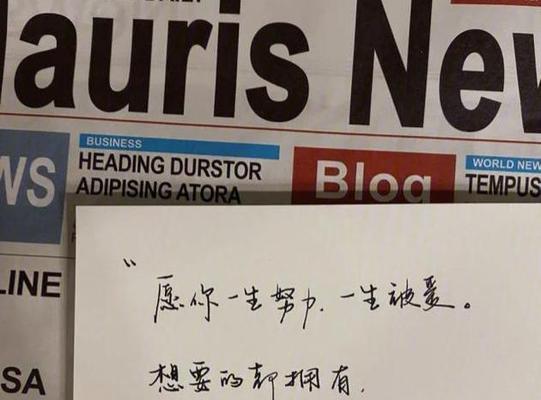 Mauris New
BUSINESS
HEADING DURSTOR
ADIPISING ATORA
WS
Blog
WORLD NEW
TEMPUS
LINE
SA
“
愿你一生努力.一生被爱。
想要的都拥有.